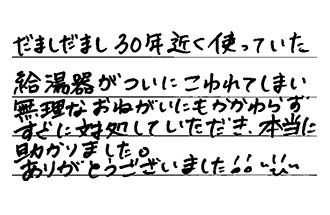 だましだまし30年近く使っていた
給湯器がついにこわれてしまい
無理なおねがいにもかかわらず
すぐに対処していただき、本当に
助かりました。
ありがとうございました!!